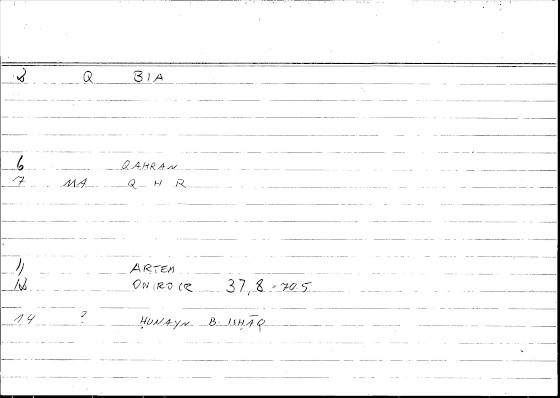 3 Q BIA
6 QAHRAN
7 MA Q H R
11 ARTEM
12 ONIROCR 37,8 - 70.5
14 ? ḤUNAYN B ISḤĀQ